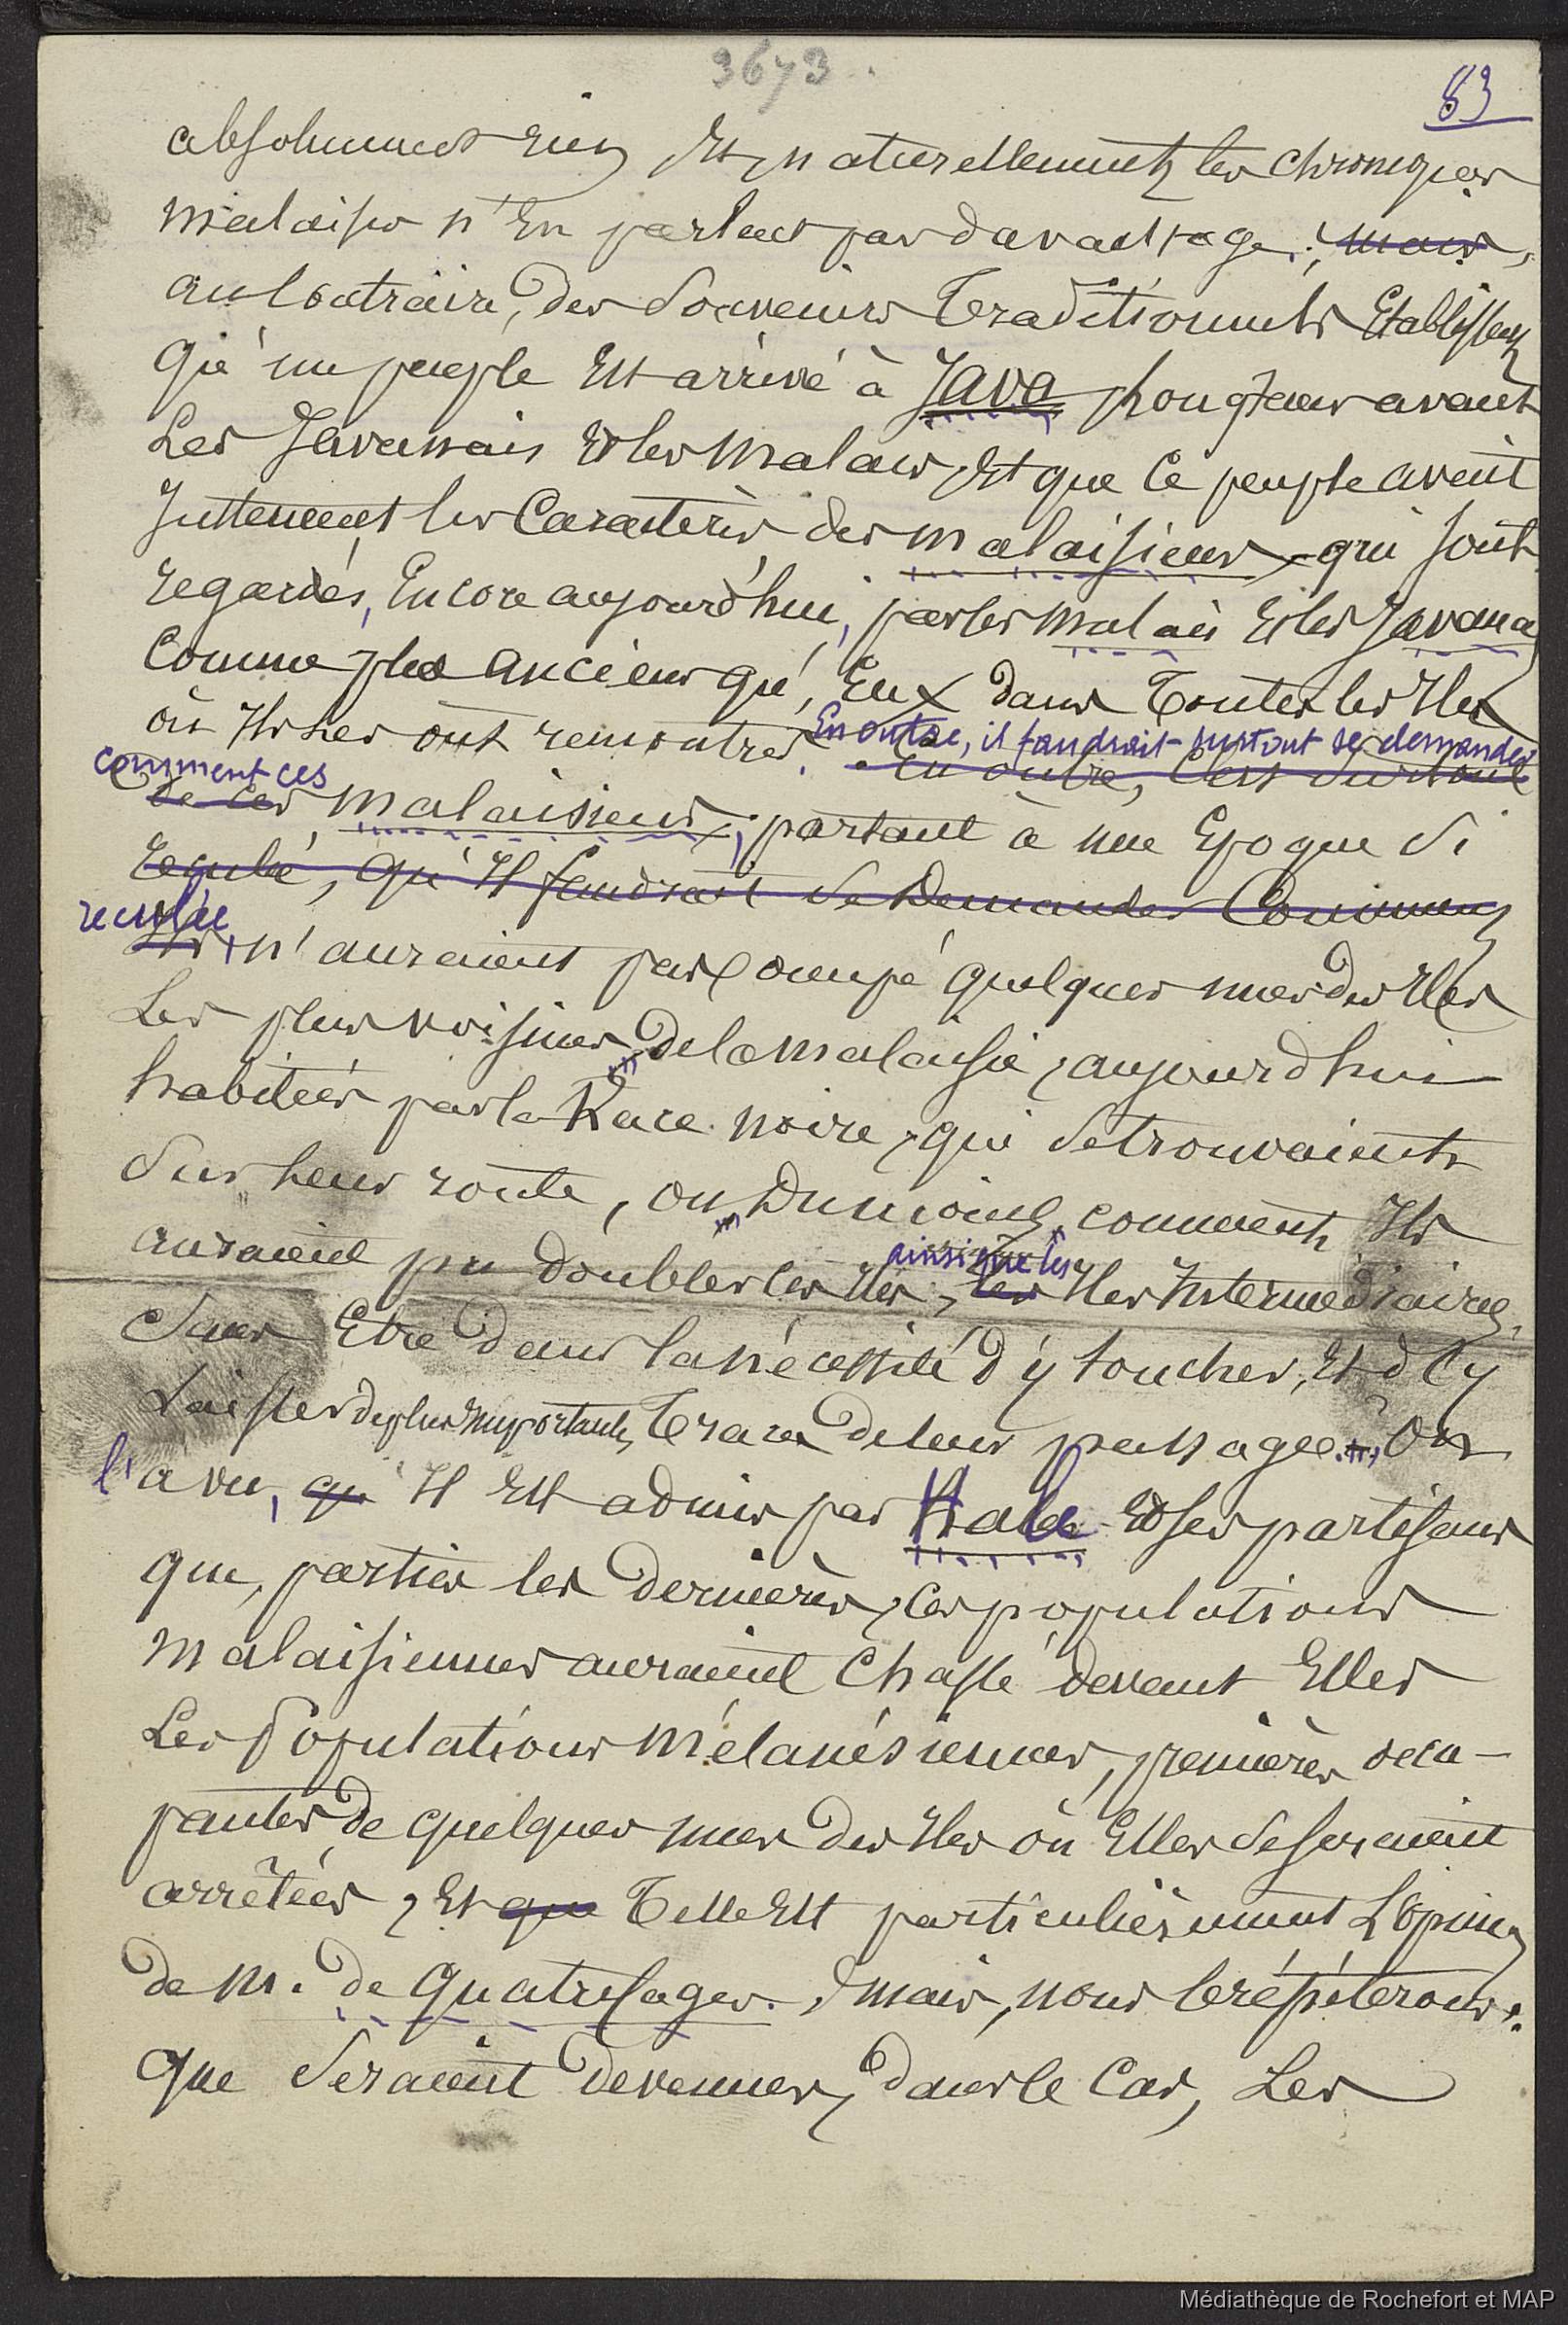 3673
83
absolument rien Et, naturellement, les chroniques
malaises n'En parlent pas davantage ; mais,
au contraire, des Souvenirs Traditionnels Etablissent
qu'un peuple Est arrivé à Java longtems avant
Les Javanais Et les Malais, Et que ce peuple avait
Justement les Caractères des malaisiens qui sont
regardés, Encore aujourd'hui, par les malais Et les Javanais
Comme plus anciens qu'Eux dans Toutes les Iles
où Ils Les ont rencontrés. En outre, c'est surtout
En outre, il faudrait surtout se demander
comment ces
de ces malaisiens, partant à une Epoque Si
reculée, qu'Il faudrait Se Demander Comment
reculée
Ils, n'auraient pas occupé quelques unes des Iles
Les plus voisines de la malaisie, aujourd'hui
habitées par la Race noire, qui Se trouvaient
Sur Leur route, ou, Du moins, comment Ils
auraient pu doubler ces Iles, les Iles Intermédiaires,
ainsi que les
Sans Etre dans la nécessité d'y toucher, Et d'y
Laisser de plus Importantes Traces de leur passage. On
l'a vu, qu'Il Est admis par Hale Et ses partisans
que, parties les dernières, ces populations
malaisiennes auraient Chassé devant Elles
Les Populations mélanésiennes, premières occu-
pantes de quelques unes des Iles où Elles Se seraient
arrêtées, Et que Telle Est particulièrement L'opinion
de M. de Quatrefages. mais, nous le répéterons :
que Seraient devenues, dans le Cas, Les
Médiathèque de Rochefort et MAP